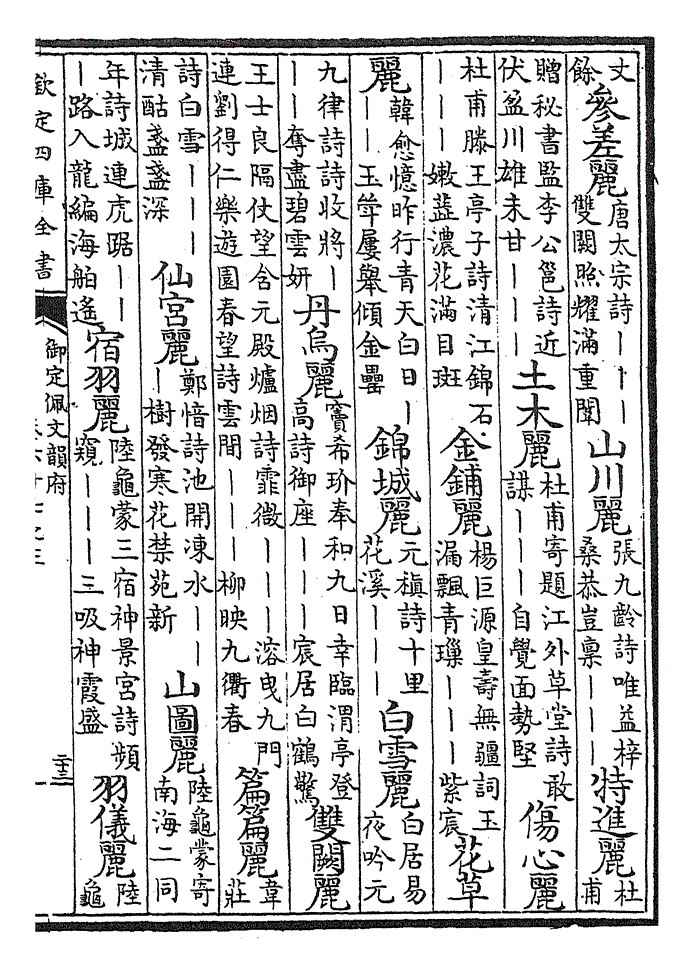 丈
餘
參差麗
唐太宗詩｜｜｜
雙闕照耀滿重闉
山川麗
張九齡詩唯益梓
桑恭豈稟｜｜｜
特進麗
杜
甫
贈秘書監李公邕詩近
伏盈川雄未甘｜｜｜
土木麗
杜甫寄題江外草堂詩敢
謀｜｜｜自覺面勢堅
傷心麗
杜甫滕王亭子詩清江錦石
｜｜｜嫩蕋濃花滿目斑
金鋪麗
楊巨源皇壽無疆詞玉
漏飄青璅｜｜｜紫宸
花草
麗
韓愈憶昨行青天白日｜
｜｜玉斝屢舉傾金罍
錦城麗
元稹詩十里
花溪｜｜｜
白雪麗
白居易
夜吟元
九律詩詩收將｜
｜｜奪盡碧雲妍
丹烏麗
竇希玠奉和九日幸臨渭亭登
高詩御座｜｜｜宸居白鶴驚
雙闕麗
王士良隔仗望含元殿爐烟詩霏微｜｜｜溶曳九門
連劉得仁樂遊園春望詩雲間｜｜｜柳映九衢春
篇篇麗
韋
莊
詩白雪｜｜｜
清酤盞盞深
仙宮麗
鄭愔詩池開凍水｜｜
｜樹發寒花禁苑新
山圖麗
陸龜蒙寄
南海二同
年詩城連虎踞｜｜
｜路入龍編海舶遙
宿羽麗
陸龜蒙三宿神景宮詩頻
窺｜｜｜三吸神霞盛
羽儀麗
陸
龜
欽定四庫全書
御定佩文韻府
二十三